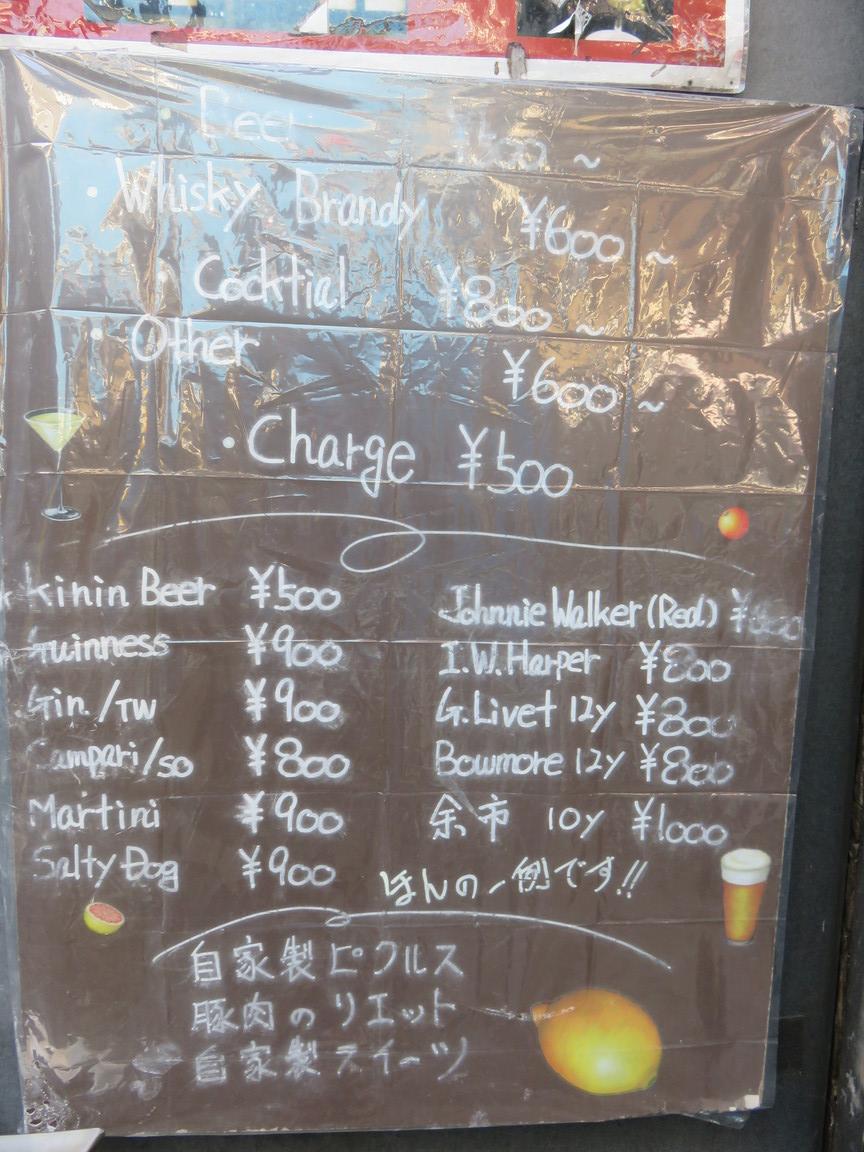 Beer ¥500 ~
・Whisky Brandy ¥600 ~
・Cocktial ¥800 ~
・Other ¥600 ~
・Charge ¥500
Kinin Beer ¥500
Guinness ¥900
Gin/TW ¥900
Campari/so ¥800
Martini ¥900
Salty Dog ¥900
Johnnie Walker (Red)
I.W.Harper ¥800
G.Livet 12y ¥800
Bowmore 12y ¥800
余市 10y ¥1000
ほんの一例です!!
自家製ピクルス
豚肉のリエット
自家製スイーツ